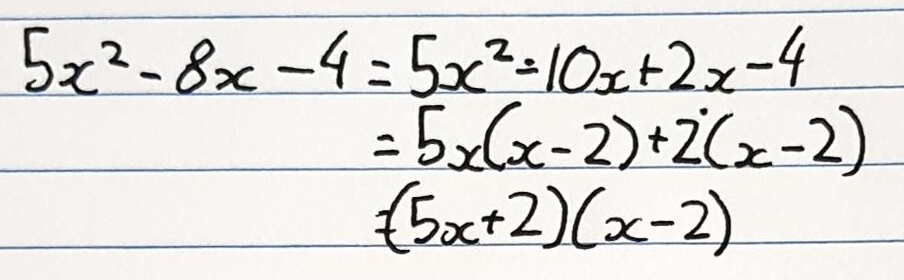 5x² - 8x - 4 = 5x² - 10x + 2x - 4
= 5x(x - 2) + 2(x - 2)
= (5x + 2)(x - 2)